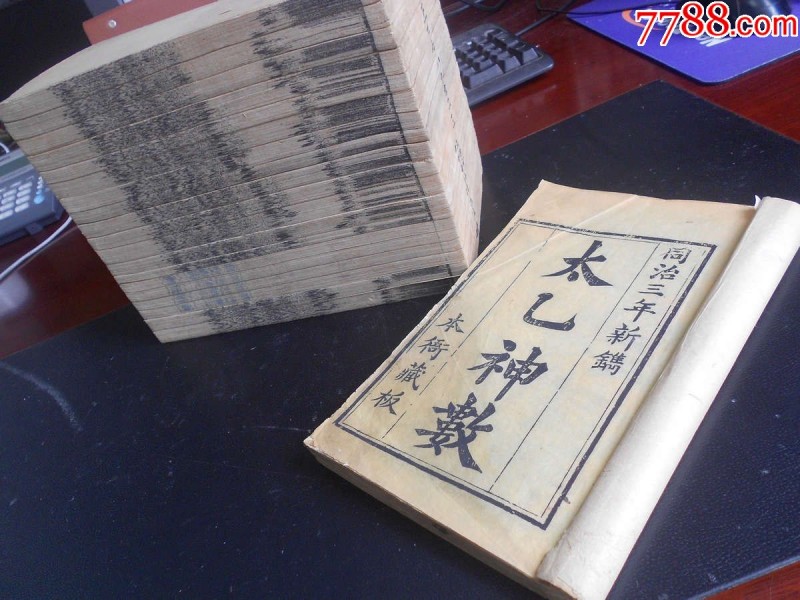 7788.com
同治三年新鐫
太乙神數
本衙藏板